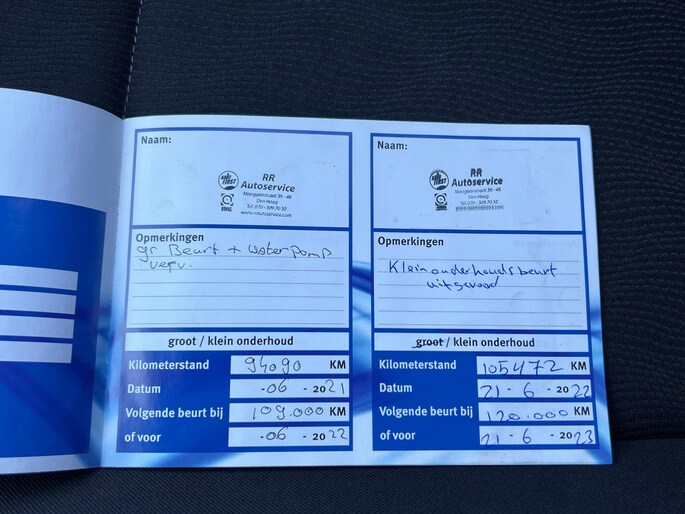 Naam:
RR
Autoservice
Den Haag
Tel. 070 - 309 70 10
www.rrautoservice.com
Opmerkingen
gr Beurt + waterpomp
verv.
groot / klein onderhoud
Kilometerstand 94090 KM
Datum -06 - 2021
Volgende beurt bij 109.000 KM
of voor -06 - 2022
Naam:
RR
Autoservice
Den Haag
Opmerkingen
Klein onderhoudsbeurt
uitgevoerd
groot / klein onderhoud
Kilometerstand 105472 KM
Datum 21 - 6 - 2022
Volgende beurt bij 120.000 KM
of voor 21 - 6 - 2023